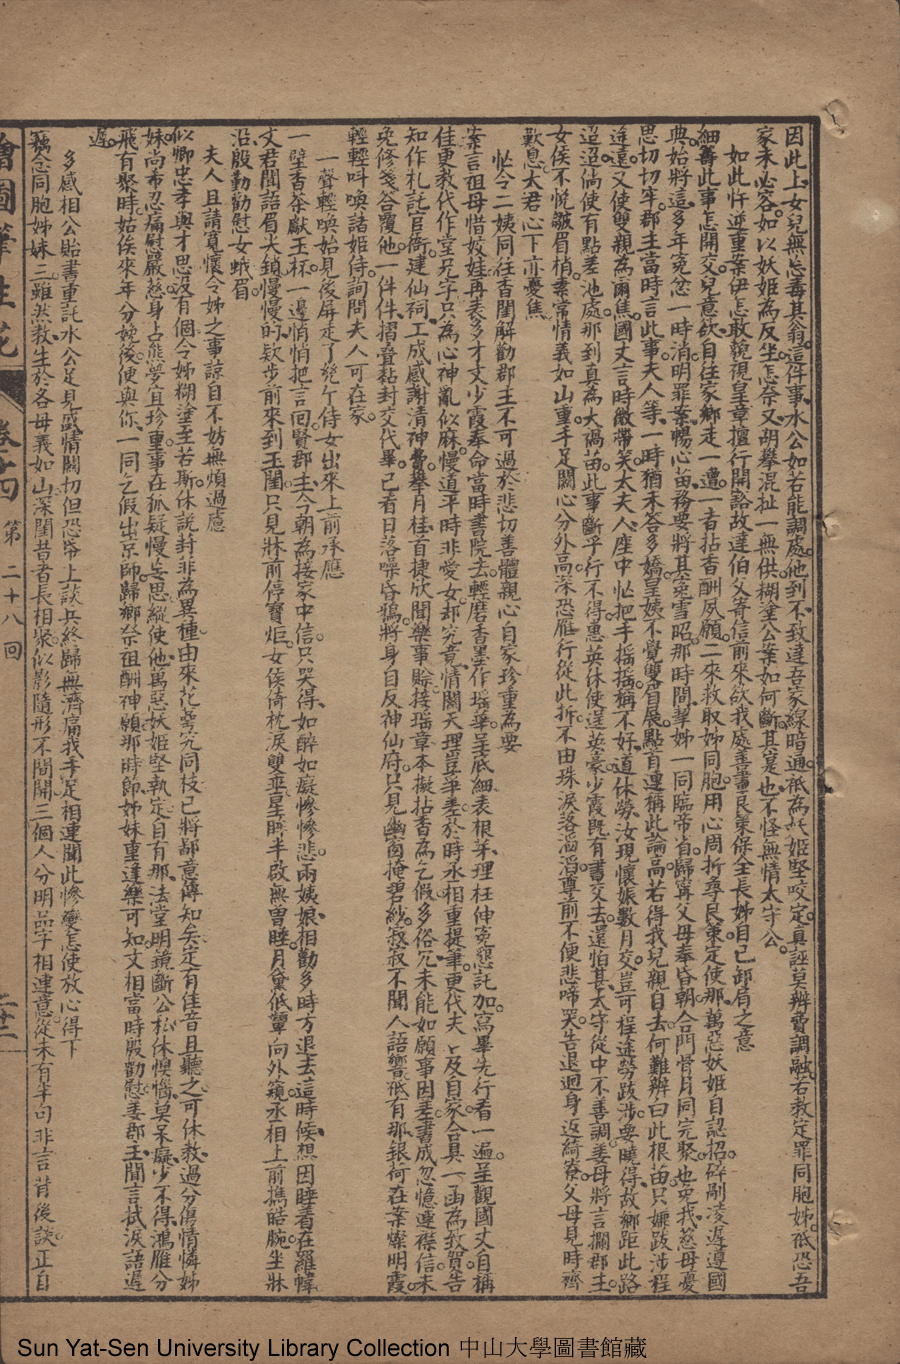 因此上女兒無怎毒其翁這件事水公如若能調處他到不致達吾家線暗通祇為妖姬堅咬定真誣莫辨費調融若教定罪同胞姊祇恐吾
家未必容如以妖姬為反坐怎奈又胡攀混扯一無供糊塗公案如何斷其寔也不怪無情太守公
如此忤逆重案伊怎敢藐視皇章擅行開豁故達伯父寄信前來欲我處善畫良策保全長姊自己卸肩之意
細壽此事怎開交兒意欲自往家鄉走一遭一者拈香酬夙願二來救取姊同胞用心周折尋良策定使那萬惡妖姬自認招碎剮凌遲遵國
典始將這多年寃忿一時消明罪案暢心苗務要將其寃雪昭那時間挈姊一同臨帝省歸寧父母奉昏朝合門骨月同完聚也免我慈母憂
思切切牢郡主當時言此事夫人等一時猶未答多嬌皇姨不覺雙眉展點首連稱此論高若得我兒親自去何難辨白此根苗只嫌跋涉程
途遠又使雙親為爾焦國丈言時微帶笑太夫人座中忙把手搖搖稱不好道休勞汝現懷娠數月交豈可程途勞跋涉要曉得故鄉距此路
迢迢倘使有點差池處那到真為大禍苗此事斷乎行不得惠英休使逞英豪少霞既有書交去還怕甚太守從中不善調姜母將言攔郡主
女侯不悅皺眉梢素常情義如山重手足關心分外高深恐雁行從此拆不由珠淚落滔滔尊前不便悲啼哭告退迴身返綺寮父母見時齊
歎息太君心下亦憂焦
忙令二姨同往香閨解勸郡主不可過於悲切善體親心自家珍重為要
素言祖母惜姣娃再表多才文少霞奉命當時書院去輕磨香墨作瑤華呈底細表根芽理枉伸寃懇託加寫畢先行看一遍呈觀國丈自稱
佳更教代作堂兄字只為心神亂似麻慢道平時非愛女却究竟情關天理豈爭差於時丞相重提筆更代夫人及自家合具一函為致賀告
知作札託官衙建仙祠工成感謝清神費舉月桂首捷欣聞樂事賒接瑞章本擬拈香為乞假多俗冗未能如願事因差書成忽憶連襟信未
免修箋荅覆他一件件摺疊黏封交代畢已看日落噪昏鴉將身自反神仙府只見幽窗掩碧紗寂寂不聞人語響祇有那銀荷在案燦明霞
輕輕呌喚諸姬侍詢問夫人可在家
一聲輕喚始見後屏走了幾个侍女出來上前承應
一壁香茶獻玉杯一邊悄悄把言回賢郡主今朝為接家中信只哭得如醉如癡慘慘悲兩姨娘相勸多時方退去這時候想因睡着在羅幃
文君聞語眉尖鎖慢慢的欵步前來到玉閨只見牀前停寶炬女侯倚枕淚雙垂星眸半啟無曾睡月黛低顰向外窺丞相上前携皓腕坐牀
沿殷勤勸慰女蛾眉
夫人且請寬懷令姊之事諒自不妨無煩過慮
似卿忠孝與才思沒有個令姊糊塗至若斯休說封非為異種由來花萼究同枝已將鄙意傳知矣定有佳音且聽之可休教過分傷情憐姊
妹尚希忍痛慰嚴慈身占熊夢宜珍重事在狐疑慢妄思縱使他萬惡妖姬堅執定自有那法堂明鏡斷公私休懊惱莫呆癡少不得鴻雁分
飛有聚時姑俟來年分娩後便與你一同乞假出京師歸鄉祭祖酬神願那時節姊妹重逢樂可知文相當時殷勸慰姜郡主聞言拭淚語遲
遲
多感相公貽書重託水公足見高情關切但恐帋上談兵終歸無濟痛我手足相連聞此慘變怎使放心得下
竊念同胞姊妹三雖然教生於各母義如山深閨昔者長相聚似影隨形不間開三個人分明品字相連意從未有半句非言背後談正自
繪圖筆生花 卷之四 第二十八回 二十二
Sun Yat-Sen University Library Collection 中山大學圖書館藏